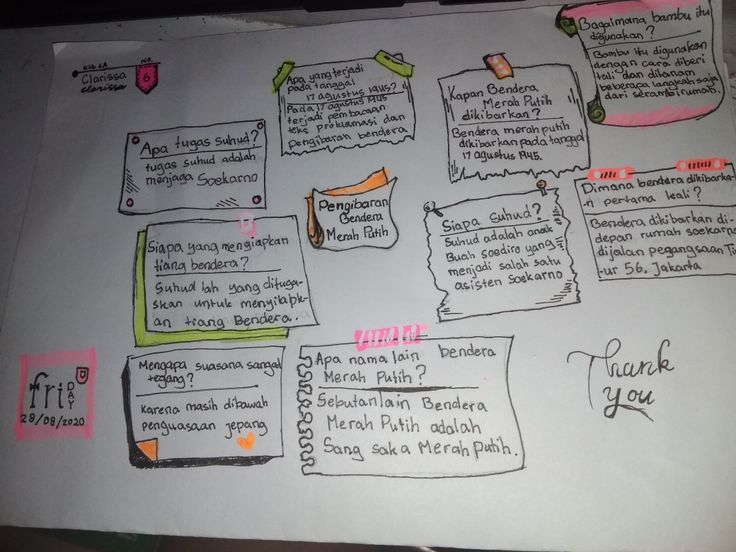 Kls 6A
NO.
Clarissa
Clarissa
6
Apa yang terjadi
pada tanggal
17 agustus 1945?
Pada 17 agustus 1945
terjadi pembacaan
teks proklamasi dan
pengibaran bendera
Kapan Bendera
Merah Putih
dikibarkan?
Bendera merah putih
dikibarkan pada tanggal
17 Agustus 1945.
Bagaimana bambu itu
digunakan?
Bambu itu digunakan
dengan cara diberi
tali dan ditanam
beberapa langkah saja
dari serambi rumah.
Apa tugas suhud?
tugas suhud adalah
menjaga Soekarno
Pengibaran
Bendera
Merah Putih
Siapa suhud?
Suhud adalah anak
Buah soediro yang
menjadi salah satu
asisten Soekarno
Dimana bendera dikibarka-
n pertama kali?
Bendera dikibarkan di-
depan rumah soekarno
dijalan pegangsaan Tim
-ur 56. Jakarta
Siapa yang menyiapkan
tiang bendera?
Suhud lah yang dituga-
skan untuk menyiapk-
an tiang Bendera.
fri
DAY
28/08/2020
Mengapa suasana sangat
tegang?
Karena masih dibawah
penguasaan jepang
Apa nama lain bendera
Merah Putih?
Sebutan lain Bendera
Merah Putih adalah
Sang saka Merah Putih.
Thank
you